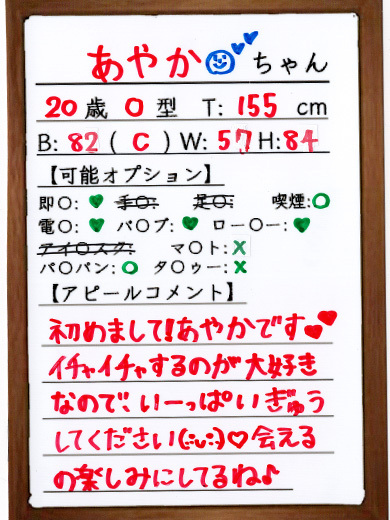 あやか ちゃん
20歳 O型 T:155cm
B:82(C)W:57H:84
【可能オプション】
即〇:♥ 手〇: 足〇: 喫煙:○
電〇:♥ パ〇ブ:♥ ロー〇ー:♥
アイ〇スク: マ〇ト:X
パ〇パン:○ タ〇ゥー:X
【アピールコメント】
初めまして!あやかです♥♥
イチャイチャするのが大好き
なので、いーっぱいぎゅう
してください(:3ω:3)♡会える
の楽しみにしてるね♪